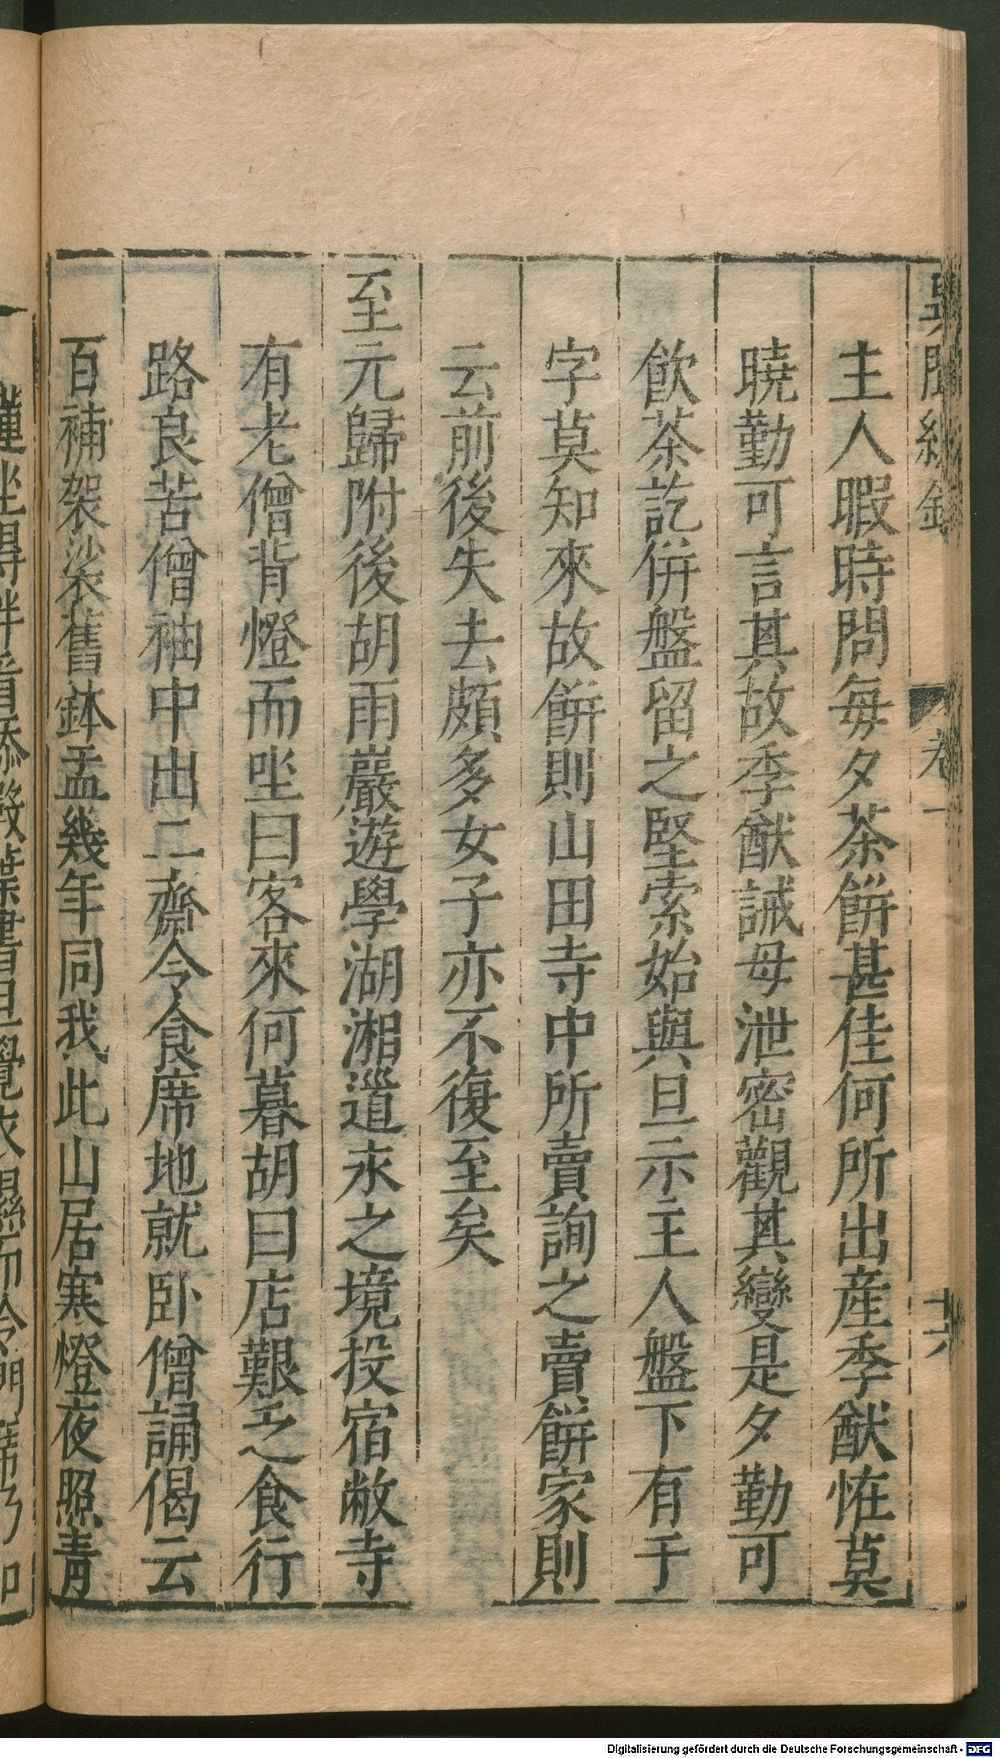 主人暇時問每夕茶餅甚佳何所出產季猷恠莫
曉勤可言其故季猷誡毋泄密觀其變是夕勤可
飲茶訖併盤留之堅索始與旦示主人盤下有于
字莫知來故餅則山田寺中所賣詢之賣餅家則
云前後失去頗多女子亦不復至矣
至元歸附後胡雨巖遊學湖湘道永之境投宿敝寺
有老僧背燈而坐曰客來何暮胡曰店艱乏食行
路良苦僧袖中出二齋令食席地就卧僧誦偈云
百補袈裟舊鉢盂幾年同我此山居寒燈夜照青
卷一
十六
Digitalisierung gefördert durch die Deutsche Forschungsgemeinschaft - DFG